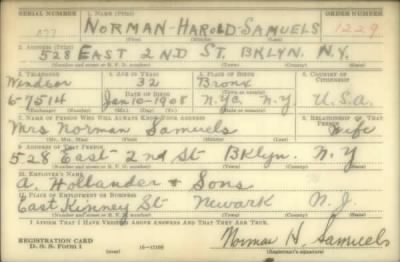 SERIAL NUMBER 1. NAME (Print) ORDER NUMBER
NORMAN-HAROLD-SAMUELS 1229
(First) (Middle) (Last)
2. ADDRESS (Print)
528 EAST 2ND ST. BKLYN. N.Y.
(Number and street or R. F. D. number) (Town) (County) (State)
3. TELEPHONE 4. AGE IN YEARS 5. PLACE OF BIRTH 6. COUNTRY OF CITIZENSHIP
Windsor 32 Bronx
DATE OF BIRTH
6-7514 Jan 10-1908 N.Y.C. N.Y U.S.A.
(Exchange) (Mo.) (Day) (Yr.) (Town or county) (State or country)
7. NAME OF PERSON WHO WILL ALWAYS KNOW YOUR ADDRESS 8. RELATIONSHIP OF THAT PERSON
Mrs Norman Samuels Wife
(Mr., Mrs., Miss) (First) (Middle) (Last)
9. ADDRESS OF THAT PERSON
528 East 2nd St Bklyn. N.Y
(Number and street or R. F. D. number) (Town) (County) (State)
10. EMPLOYER'S NAME
A. Hollander & Sons
11. PLACE OF EMPLOYMENT OR BUSINESS
East Kinney St Newark N.J.
(Number and street or R. F. D. number) (Town) (County) (State)
I AFFIRM THAT I HAVE VERIFIED ABOVE ANSWERS AND THAT THEY ARE TRUE.
REGISTRATION CARD
D. S. S. FORM 1 16-17105 Norman H. Samuels
(Registrant's signature)